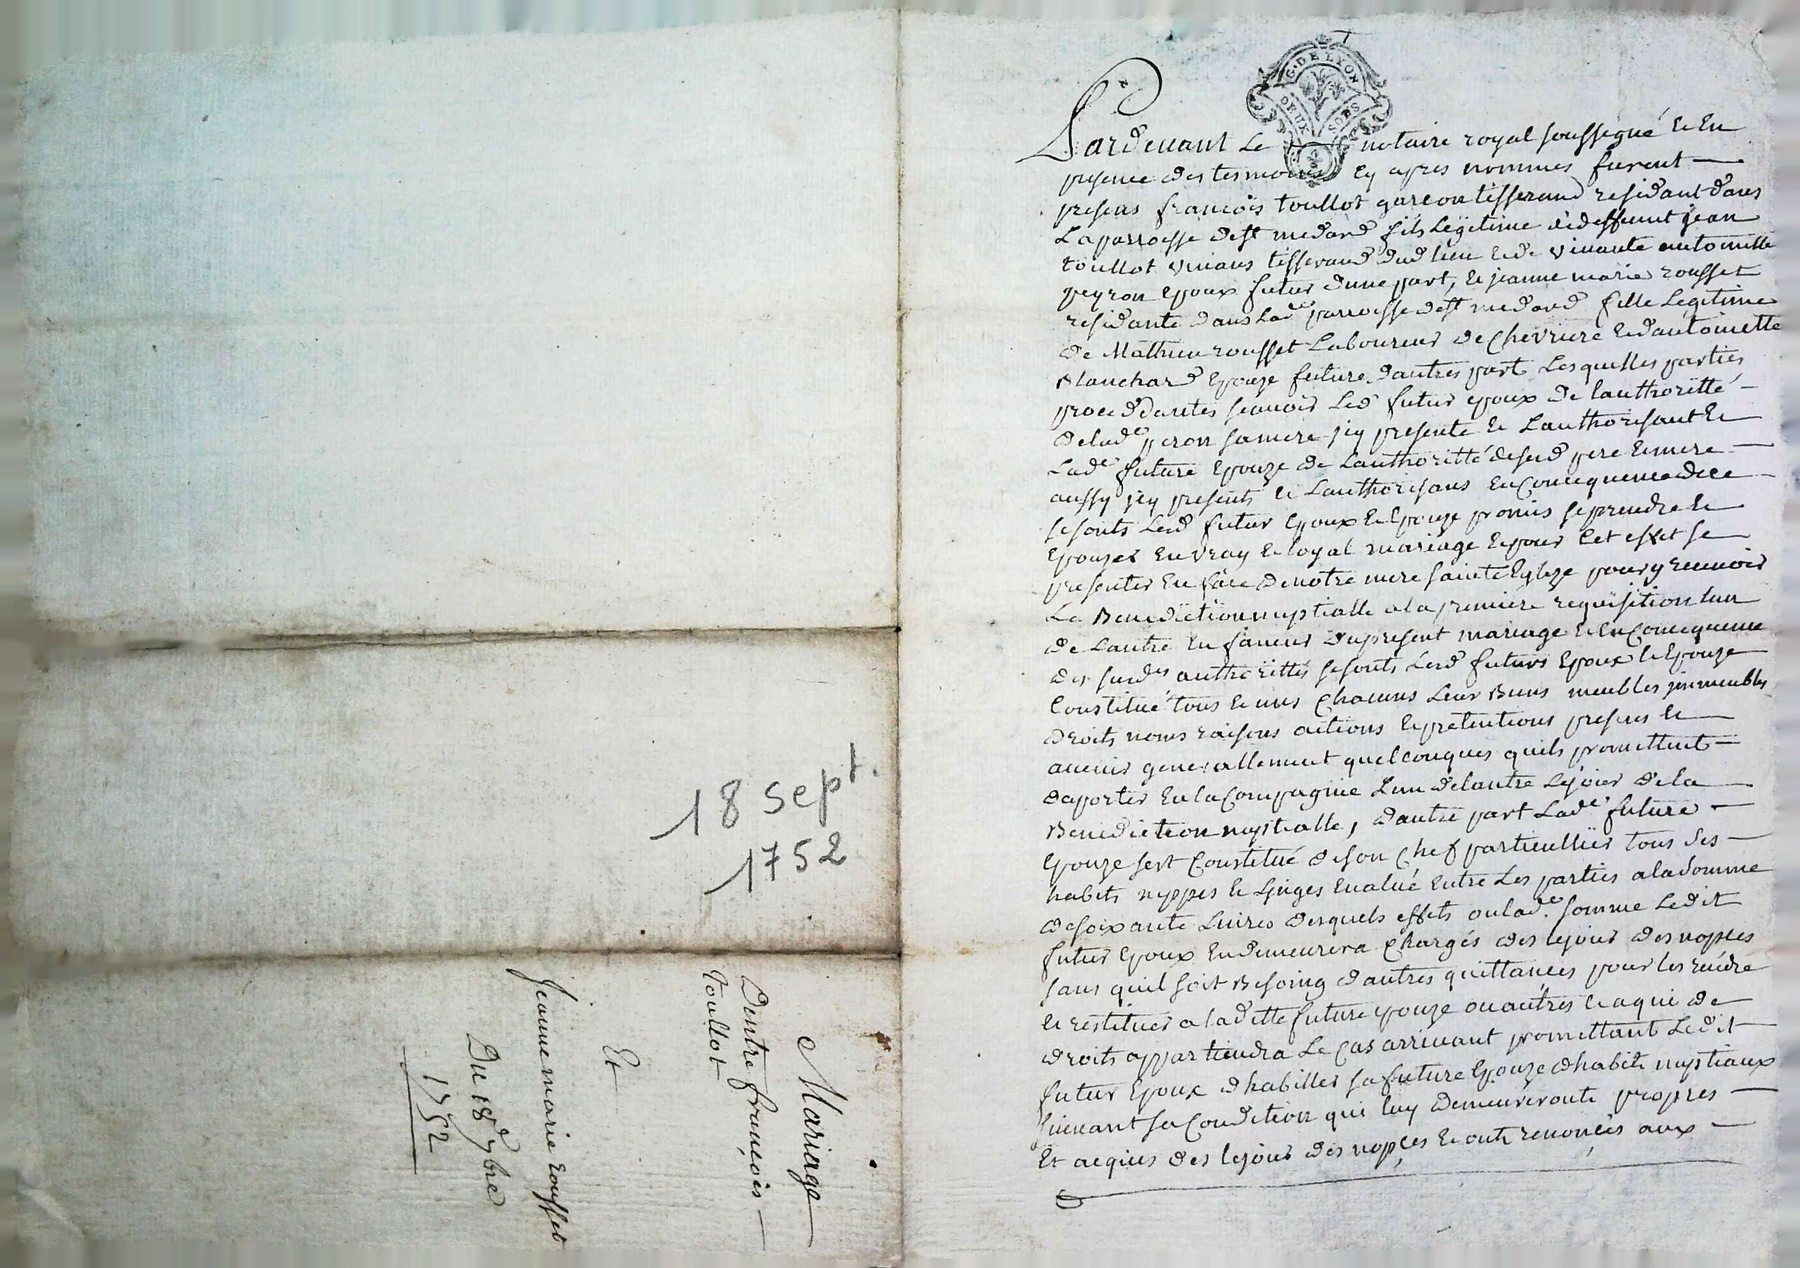 18 sept.
1752
Mariage
Dentre francois
toullot
Et
Jeanne marie rousset
Du 18e 7bre
1752
G. DE LYON
DEUX SOLS
Pardevant Le notaire royal soussigné Et En
presence des tesmoins Cy apres nommes furent
presens francois toullot garcon tisserand residant dans
La parroisse de st medard fils Legitime de deffunt jean
toullot vivans tisserand dud lieu et de vivante antoinette
peyron Epoux futur dune part, Et jeanne marie rousset
residante dans Lade parroisse de st medard fille Legitime
de Mathieu rousset Laboureur de Chevriere Et dantoinette
Blanchard Epouze future dautres part Lesquelles parties
proceddantes scavoir Led futur epoux de lauthoritté
de lade peron sa mere jcy presente Et Lauthorisant Et
Lade future Epouze de Lauthoritté de sesd pere Et mere
aussy jcy presents Et Lauthorisans En Consequence de ce
se sonts Lesd futur Epoux Et Epouze promis se prendre Et
Epouzer En vray Et loyal mariage Et pour Cet effet se
presenter En face de notre mere sainte Eglize pour y recevoir
La Benediction nuptialle a la premiere requisition lun
de Lautre En faveur du present mariage Et En Consequence
des susdes authorittés se sonts Lesd futurs Epoux Et Epouze
Constitué tous Et uns Chacuns Leur Biens meubles jmmeubles
droits noms raisons actions Et pretentions presens Et
avenir generallement quelconques quils promettent
daporter En la Compagnie Lun de lautre Le jour de la
Benediction nuptialle, dautre part Lade future
Epouze sest Constitué de son Chef particullier tous ses
habits nippes Et Linges Evalué Entre Les parties a la somme
de soixante Livres desquels effets ou lade somme Ledit
futur Epoux En demeurera Chargés des le jour des nopces
sans quil soit Besoing dautres quittances pour les rendre
Et restituer a la ditte future epouze ou autres Et a qui de
droits appartiendra Le Cas arrivant promettant Ledit
futur Epoux dhabiller sa future Epouze dhabits nuptiaux
suivant sa Condition qui luy demeureronts propres
Et acquis des le jour des nopces Et onts renonçés aux